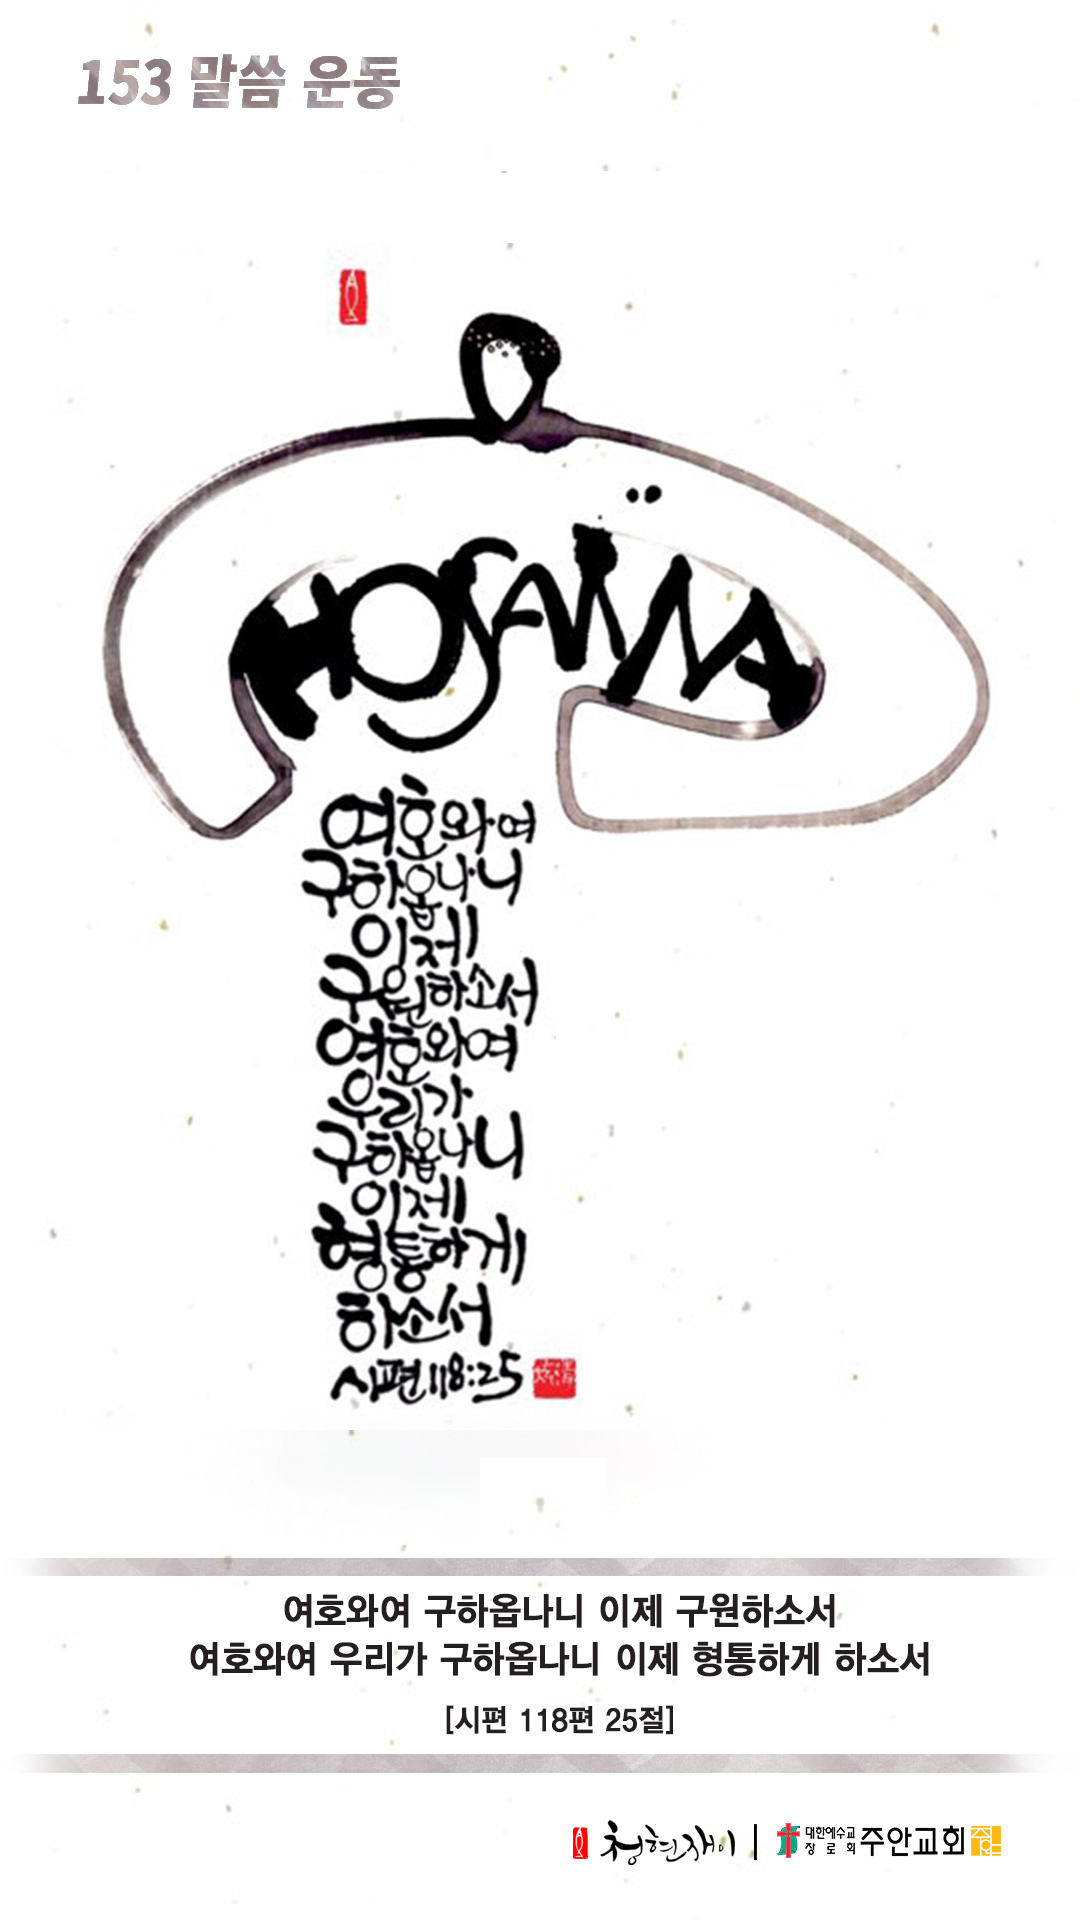 153 말씀 운동
HOSANNA
여호와여
구하옵나니
이제
구원하소서
여호와여
우리가
구하옵나니
이제
형통하게
하소서
시편 118:25
여호와여 구하옵나니 이제 구원하소서
여호와여 우리가 구하옵나니 이제 형통하게 하소서
[시편 118편 25절]
청현재이 | 대한예수교 장로회 주안교회